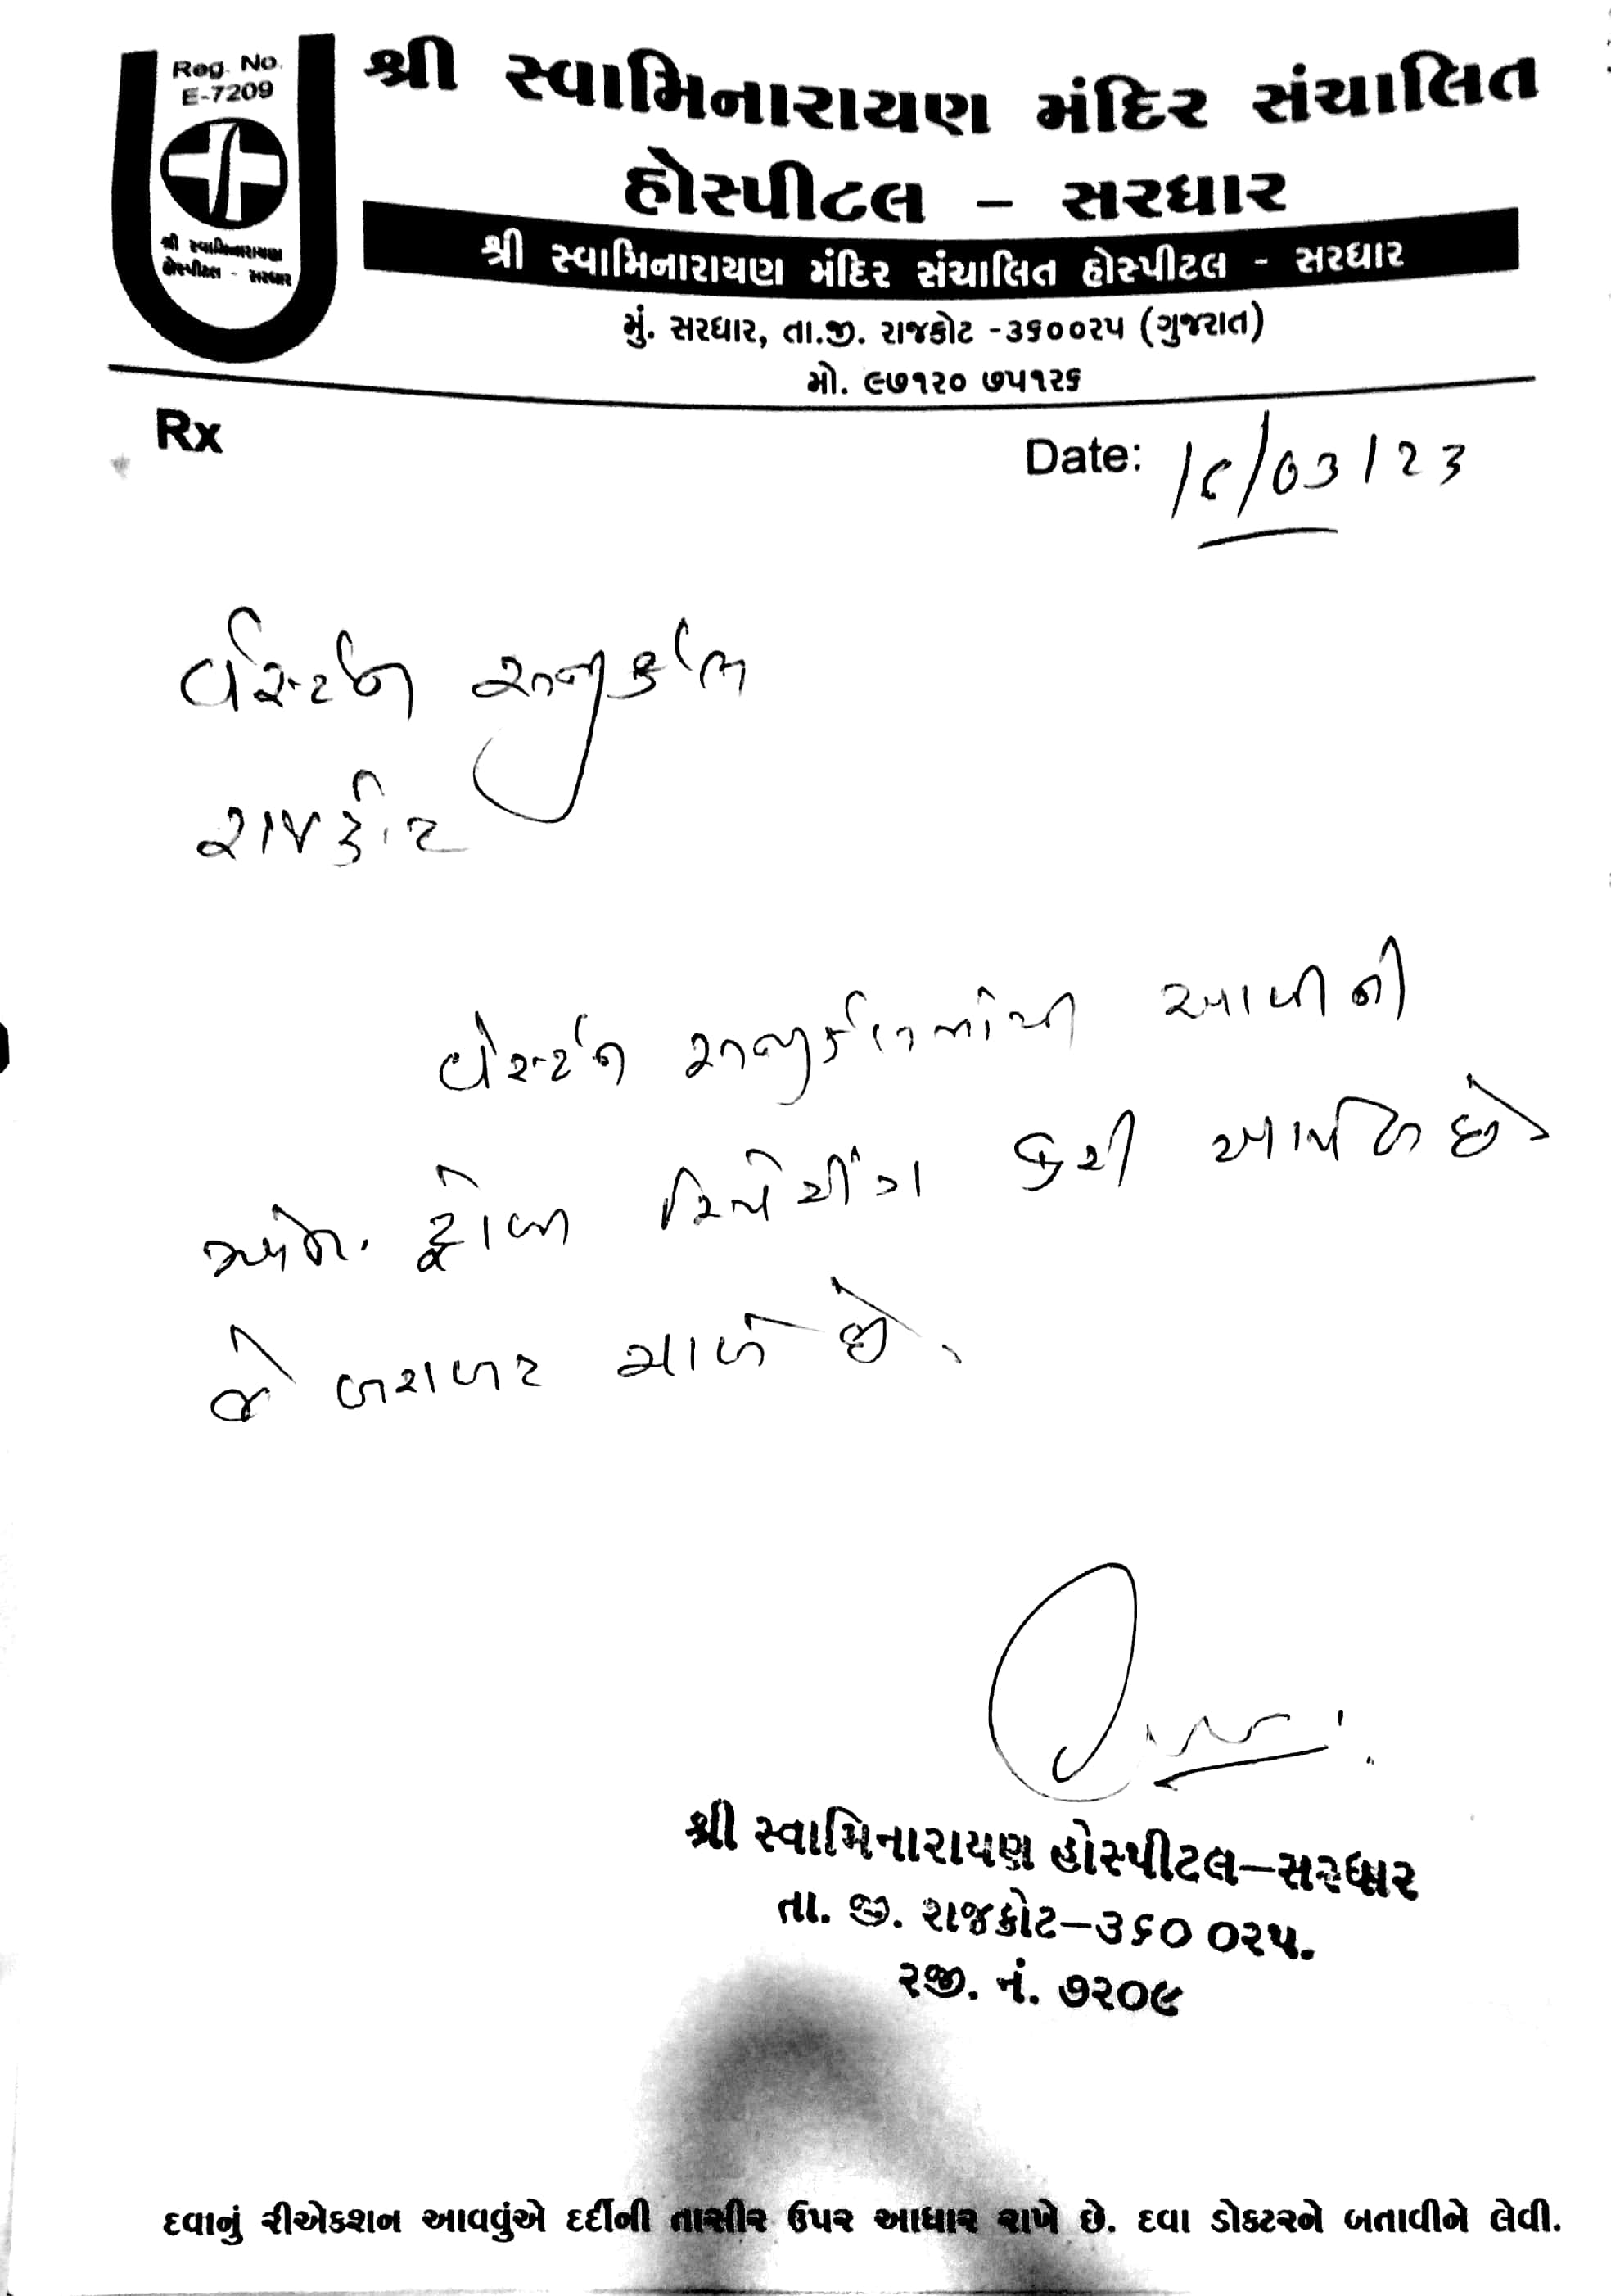 Reg. No.
E-7209
શ્રી સ્વામિનારાયણ
હોસ્પીટલ - સરધાર
શ્રી સ્વામિનારાયણ મંદિર સંચાલિત
હોસ્પીટલ – સરધાર
શ્રી સ્વામિનારાયણ મંદિર સંચાલિત હોસ્પીટલ - સરધાર
મું. સરધાર, તા.જી. રાજકોટ -૩૬૦૦૨૫ (ગુજરાત)
મો. ૯૭૧૨૦ ૭૫૧૨૬
Rx
Date: /03/23
વેસ્ટર્ન સર્જીકલ
રાજકોટ
વેસ્ટર્ન સર્જીકલમાંથી આવીને
રિપેરીંગ કરી આપેલ છે
જે બરાબર ચાલે છે.
શ્રી સ્વામિનારાયણ હોસ્પીટલ–સરધાર
તા. જી. રાજકોટ–૩૬૦ ૦૨૫.
રજી. નં. ૭૨૦૯
દવાનું રીએકશન આવવુંએ દર્દીની તાસીર ઉપર આધાર રાખે છે. દવા ડોકટરને બતાવીને લેવી.